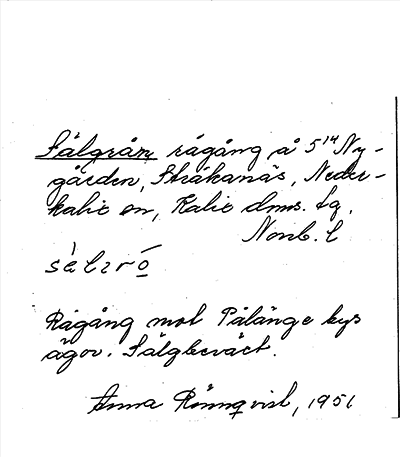 Sälgrån, rågång å 5¹⁴ Ny-
gården, Stråkanäs, Neder-
kalix sn, Kalix dms. tg,
Norrb. l
Rågång mot Pålänge bys
ägor. Sälgbeväxt.
Anna Rönnqvist, 1951